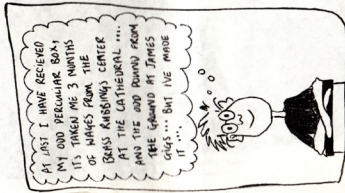 AT LAST I HAVE RECIEVED
MY ODD PERCULIAR BOX,
ITS TAKEN ME 3 MONTHS
OF WAGES FROM THE
BRASS RUBBINGS CENTER
AT THE CATHEDRAL ....
AND THE ODD POUND FROM
THE GROUND AT JAMES
GIGS... BUT I'VE MADE
IT...